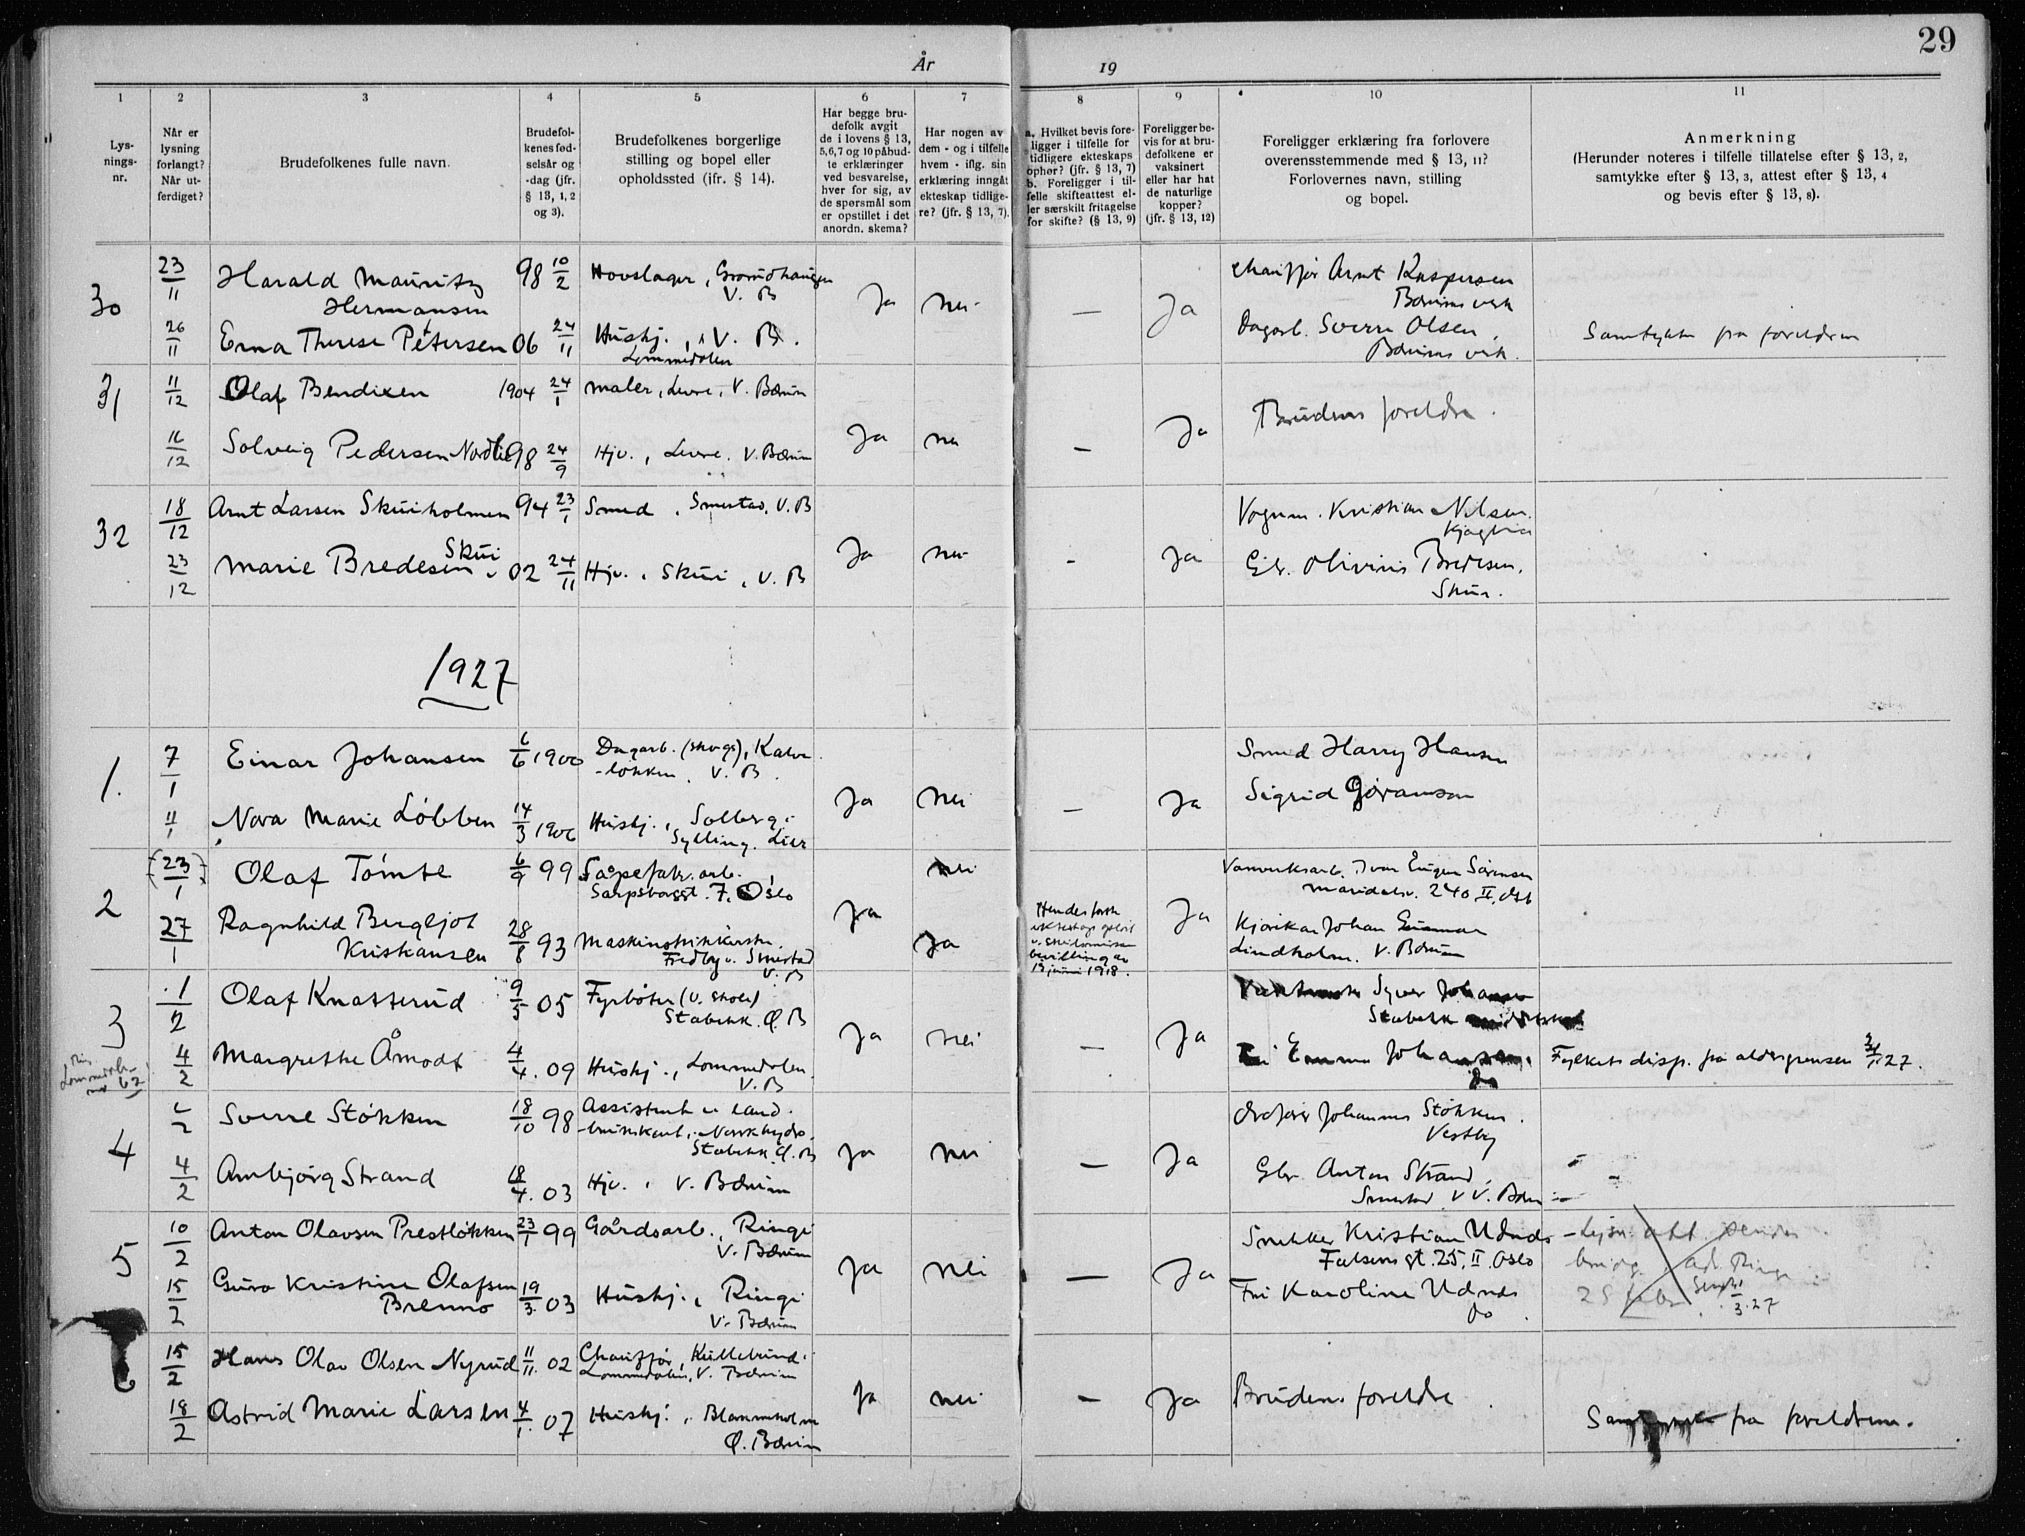 29
År 19
1 2 3 4 5 6 7 8 9 10 11
Lys-
nings-
nr.
Når er
lysning
forlangt?
Når ut-
ferdiget?
Brudefolkenes fulle navn.
Brudefol-
kenes fød-
selsår og
-dag (jfr.
§ 13, 1, 2
og 3).
Brudefolkenes borgerlige
stilling og bopel eller
opholdssted (ifr. § 14).
Har begge bru-
defolk avgit
de i lovens § 13,
5,6,7 og 10 påbud-
te erklæringer
ved besvarelse,
hver for sig, av
de spørsmål som
er opstillet i det
anordn. skema?
Har nogen av
dem - og i tilfelle
hvem - iflg. sin
erklæring inngåt
ekteskap tidlige-
re? (jfr. § 13, 7).
a. Hvilket bevis fore-
ligger i tilfelle for
tidligere ekteskaps
ophør? (jfr. § 13, 7)
b. Foreligger i til-
felle skifteattest el-
ler særskilt fritagelse
for skifte? (§ 13, 9)
Foreligger be-
vis for at bru-
defolkene er
vaksinert
eller har hat
de naturlige
kopper?
(jfr. § 13, 12)
Foreligger erklæring fra forlovere
overensstemmende med § 13, 11?
Forlovernes navn, stilling
og bopel.
Anmerkning
(Herunder noteres i tilfelle tillatelse efter § 13, 2,
samtykke efter § 13, 3, attest efter § 13, 4
og bevis efter § 13, 8).
30
23/11 Harald Mauritz
Hermansen 98 10/2 Hovslager,
V. B
Ja nei — Ja
Chauffør Arnt Kaspersen
Bærums verk
26/11 Erna Therese Petersen 06 24/11 Hushj., V. B.
Lommedalen
Dagarb. Sverre Olsen,
Bærums verk.
Samtykke fra foreldrene
31
11/12 Olaf Bendixen 1904 24/1 Maler, Levre, V. Bærum
Ja nei — Ja
Brudens foreldre.
16/12 Solveig Pedersen 98 24/9 Hjv., Levre. V. Bærum
32
18/12 Arnt Larsen Skuiholmen 94 23/1 Smed, Smestad, V. B
Ja nei - Ja
Vognm. Kristian Nilsen.
23/12 Marie Bredesen Skui 02 24/11 Hjv., Skui, V. B
Olivius Bredesen,
Skui.
1927
1.
7/1 Einar Johansen 6/6 1900 Dagarb. (skogs), Kalve
-løkken. V. B.
Ja nei — Ja
Smed Harry Hansen
11/1 Nora Marie Løbben 14/3 1906 Hushj., Solberg
Sylling. Lier
Sigrid Gøranson
2
(23/1) Olaf Tømte 6/9 99 Såpefabr. arb.
Sarpsborggt. 7. Oslo
nei
Ja Ja
Ivar Eugen Sørensen
Maridalsv. 240 II, Oslo
27/1 Ragnhild Bergljot
Kristiansen 28/8 93 Maskinstrikkerske,
Smestad
V. B
Ja
bevilling av
1918.
Johan
Lindholm. V. Bærum
3
1/2 Olaf Knatterud 9/5 05 Fyrbøter (v. skole)
Stabekk. Ø. B
Ja nei — Ja
Syver Johansen
Stabekk
4/2 Margrethe Åmodt 4/4. 09 Hushj., Lommedalen.
V. B
Emma Johansen.
do
Fylkets disp. fra aldersgrensen 27.
4
2/2 Sverre Støkken 18/10 98 Assistent v. land-
Norsk hydro,
Stabekk Ø. B
Ja nei — Ja
Johannes Støkken.
Vestby
4/2 Ambjørg Strand 18/4. 03 Hjv., V. Bærum
Gbr. Anton Strand,
Smestad, V. Bærum
5
10/2 Anton Olavsen Prestløkken 23/1 99 Gårdsarb., Ringi
V. Bærum
Ja nei — Ja
Snekker Kristian Udnes
Falsens gt. 25, II. Oslo
15/2 Guro Kristine Olafsen
Brenno 19/3. 03 Hushj., Ringi
V. Bærum
Fru Karoline Udnes
do.
3.27
15/2 Hans Olav Olsen Nyrud 11/11. 02 Chauffør,
Lommedalen, V. Bærum
Ja nei — Ja
Brudens foreldre.
18/2 Astrid Marie Larsen 4/1. 07 Hushj., Blommeholm
Ø. Bærum
Samtykke fra foreldrene.